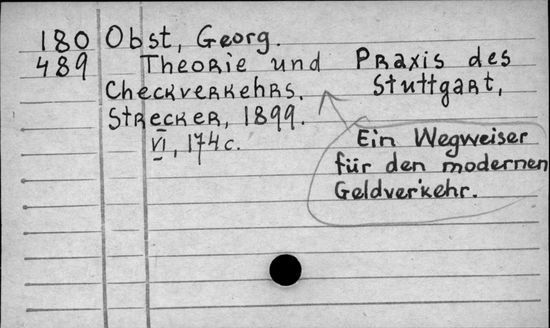 180 Obst, Georg.
489 Theorie und Praxis des
Checkverkehrs. Stuttgart,
Strecker, 1899.
VI, 174 c.
Ein Wegweiser
für den modernen
Geldverkehr.